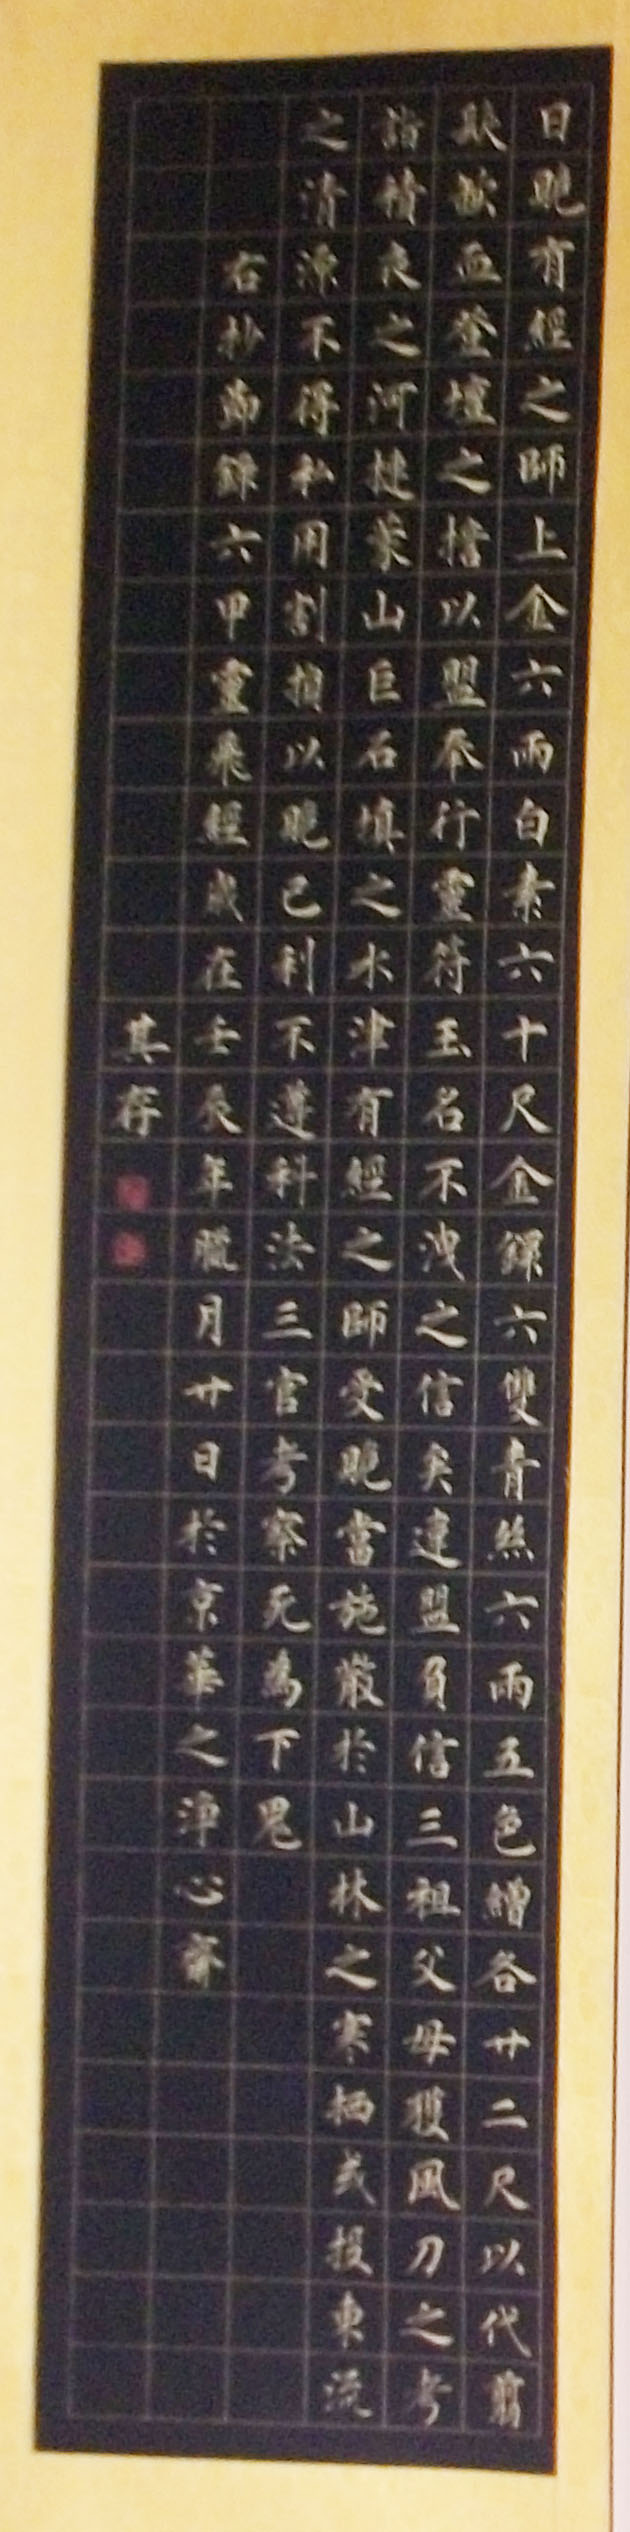 日晚有經之師上金六兩白素六十尺金鐶六雙青絲六兩五色繒各廿二尺以代翦
歃血登壇之擔以盟奉行靈符玉名不洩之信矣違盟負信三祖父母獲風刀之考
詣積夜之河揵蒙山巨石填之水津有經之師受晚當施散於山林之寒栖或投東流
之清源不得私用割損以晚己利不遵科法三官考察死為下鬼
右抄節錄六甲靈飛經成在壬辰年臘月廿日於京華之淨心齋
其存